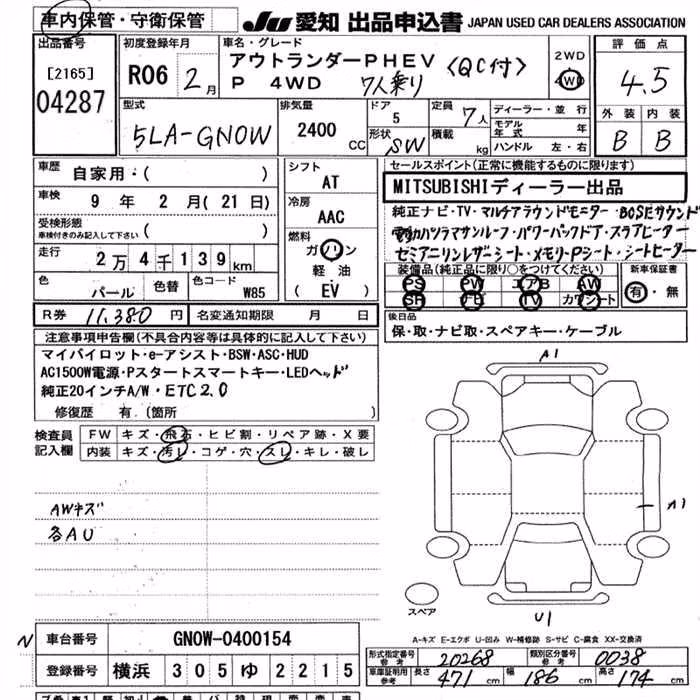 車内保管・守衛保管
JU 愛知 出品申込書 JAPAN USED CAR DEALERS ASSOCIATION
出品番号
[2165]
04287
初度登録年月
R06 2月
車名・グレード
アウトランダーPHEV 〈QC付〉
P 4WD 7人乗り
2WD
4WD
評価点
4.5
外装 内装
B B
型式
5LA-GN0W
排気量
2400 CC
ドア
5
形状
SW
定員
7人
積載
kg
ディーラー・並行
モデル年式 年
ハンドル 左・右
車歴
自家用・( )
車検
9年 2月(21日)
受検形態
車検付きのみ記入して下さい ( )
走行
2万4千139km
色
パール
色替
色コード
W85
シフト
AT
冷房
AAC
燃料
ガソリン
軽油
(EV)
セールスポイント(正常に機能するものに限ります)
MITSUBISHIディーラー出品
純正ナビ・TV・マルチアラウンドモニター・BOSEサウンド
電動パノラマサンルーフ・パワーバックドア・ステアヒーター
セミアニリンレザーシート・メモリーPシート・シートヒーター
装備品(純正品に限り○をつけてください)
PS PW エアB AW
SR ナビ TV カワシート
新車保証書
有・無
R券 11,380円
名変通知期限 月 日
後日品
保・取・ナビ取・スペアキー・ケーブル
注意事項申告欄(不具合内容等は具体的に記入して下さい)
マイパイロット・e-アシスト・BSW・ASC・HUD
AC1500W電源・Pスタートスマートキー・LEDヘッド
純正20インチA/W・ETC2.0
修復歴 有.(箇所
検査員記入欄
FW キズ・飛石・ヒビ割・リペア跡・X要
内装 キズ・汚レ・コゲ・穴・スレ・キレ・破レ
AWキズ
各AU
A1
A1
スペア
U1
A-キズ E-エクボ U-凹み W-補修跡 S-サビ C-腐食 XX-交換済
N
車台番号 GN0W-0400154
登録番号 横浜 305 ゆ 2215
形式指定番号 参考 20268
類別区分番号 参考 0038
車庫証明用 参考 長さ 471cm 幅 186cm 高さ 174cm